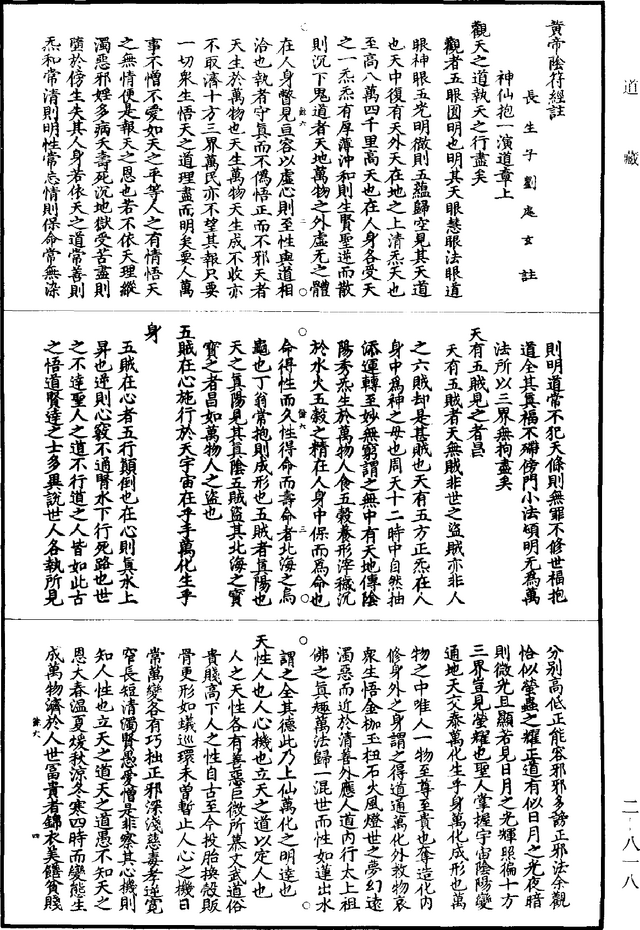 道藏
二·八一八
黃帝陰符經註
長生子劉處玄註
神仙抱一演道章上
觀天之道執天之行盡矣
觀者五眼圓明也明其天眼慧眼法眼道
眼神眼五光明徹則五蘊歸空見其天道
也天中復有天外天在地之上清炁天也
至高八萬四千里高天也在人身各受天
之一炁炁有厚薄沖和則生賢聖逆而散
則沉下鬼道者天地萬物之外虛无之體
在人身瞥見亘容以虛心則至性與道相
洽也執者守真而不僞悟正而不邪天者
天生於萬物也天生萬物天生成不收亦
不取濟十方三界萬民亦不望其報只要
一切衆生悟天之道理盡而明矣要人萬
事不憎不愛如天之平等人之有情悟天
之無情便是報天之恩也若不依天理縱
濁惡邪婬多病夭壽死沉地獄受苦盡則
墮於傍生失其人身若依天之道常善則
炁和常清則明性常忘情則保命常無染
則明道常不犯天條則無罪不修世福抱
道全其真福不殢傍門小法頓明无爲萬
法所以三界無拘盡矣
天有五賊見之者昌
天有五賊者天無賊非世之盜賊亦非人
之六賊却是甚賊也天有五方正炁在人
身中爲神之母也周天十二時中自然抽
添運轉至妙無窮謂之無中有天地傳陰
陽秀炁生於萬物人食五穀養形滓穢沉
於水火五穀之精在人身中保而爲命也
命得性而久性得命而壽命者北海之烏
龜也丁翁常抱則成形也五賊者真陽也
天之真陽見其真陰五賊盜其北海之寶
寶之者昌如萬物人之盜也
五賊在心施行於天宇宙在乎手萬化生乎
身
五賊在心者五行顛倒也在心則真水上
昇也逆則心竅不通腎水下行死路也世
之不達聖人之道不行道之人皆如此古
之悟道賢達之士多異說世人各執所見
分别高低正能容邪邪多謗正邪法余觀
恰似螢蟲之耀正道有似日月之光夜暗
則微光且顯若見日月之光輝照徧十方
三界豈見螢耀也聖人掌握宇宙陰陽變
通地天交泰萬化生乎身萬化成形也萬
物之中唯人一物至尊至貴也奪造化内
修身外之身謂之得道通萬化外救物哀
衆生悟金枷玉杻石火風燈世之夢幻遠
濁惡而近於清善外應人道内行太上祖
佛之真趣萬法歸一混世而性如蓮出水
謂之全其德此乃上仙萬化之明達也
天性人也人心機也立天之道以定人也
人之天性各有善惡巨微所慕文武道俗
貴賤高下人之性自古至今投胎換殼販
骨更形如蟻巡環未曾暫止人心之機日
常萬變各有巧拙正邪深淺慈毒孝逆寬
窄長短清濁賢愚愛憎是非察其心機則
知人性也立天之道天之道愚不知天之
恩大春温夏煖秋凉冬寒四時而變態生
成萬物濟於人世冨貴者錦衣美饍貧賤